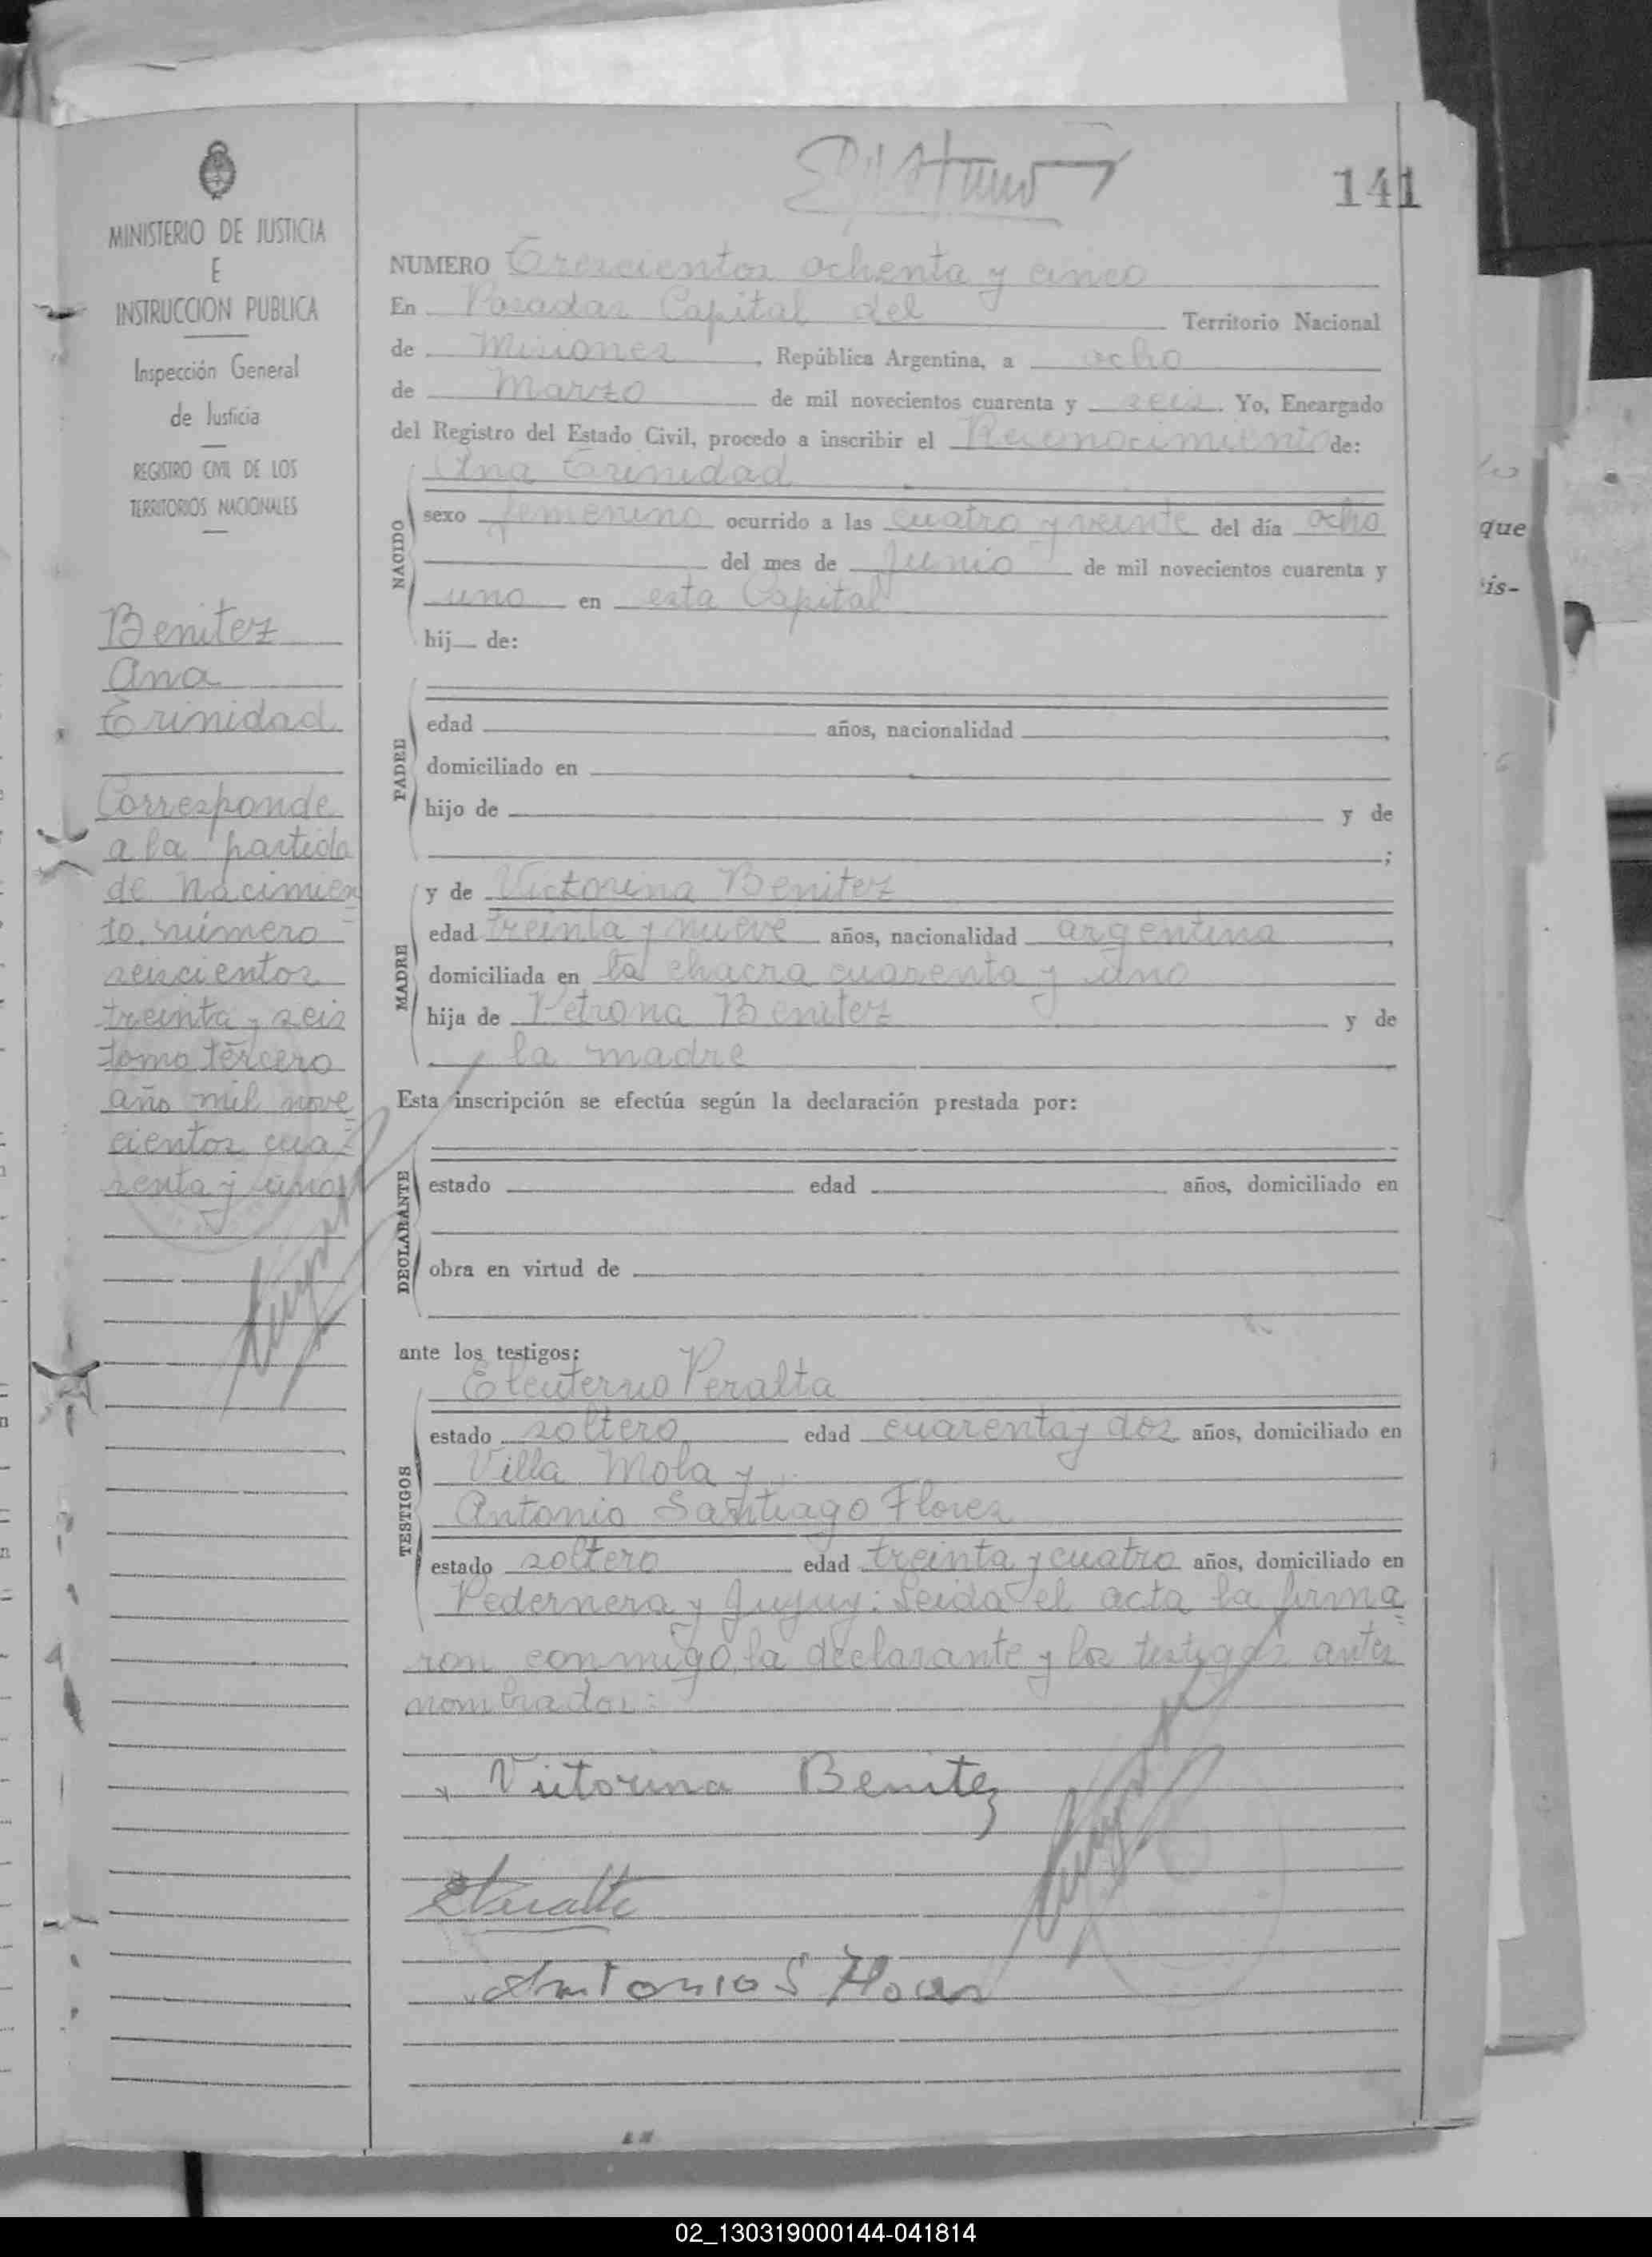 141
MINISTERIO DE JUSTICIA
E
INSTRUCCION PUBLICA
Inspección General
de Justicia
REGISTRO CIVIL DE LOS
TERRITORIOS NACIONALES
Benitez
Ana
Trinidad
Corresponde
a la partida
de Nacimien
to, número
seiscientos
treinta y seis
tomo tercero
año mil nove
cientos cua-
renta y uno
NUMERO Trescientos ochenta y cinco
En Posadas Capital del Territorio Nacional
de Misiones, República Argentina, a ocho
de Marzo de mil novecientos cuarenta y seis. Yo, Encargado
del Registro del Estado Civil, procedo a inscribir el Reconocimiento de:
Ana Trinidad
NACIDO
sexo femenino ocurrido a las cuatro y veinte del día ocho
del mes de Junio de mil novecientos cuarenta y
uno en esta Capital
hij de:
PADRE
edad años, nacionalidad
domiciliado en
hijo de y de
;
MADRE
y de Victorina Benitez
edad treinta y nueve años, nacionalidad argentina,
domiciliada en la chacra cuarenta y uno
hija de Petrona Benitez y de
la madre
Esta inscripción se efectúa según la declaración prestada por:
DECLARANTE
estado edad años, domiciliado en
obra en virtud de
ante los testigos:
TESTIGOS
Eleuterio Peralta
estado soltero edad cuarenta y dos años, domiciliado en
Villa Mola y
Antonio Santiago Flores
estado soltero edad treinta y cuatro años, domiciliado en
Pedernera y Jujuy: Leida el acta la firma
ron conmigo, la declarante y los testigos antes
nombrados:
Victorina Benitez
EPeralta
Antonio S Flores
que
is-
02_130319000144-041814